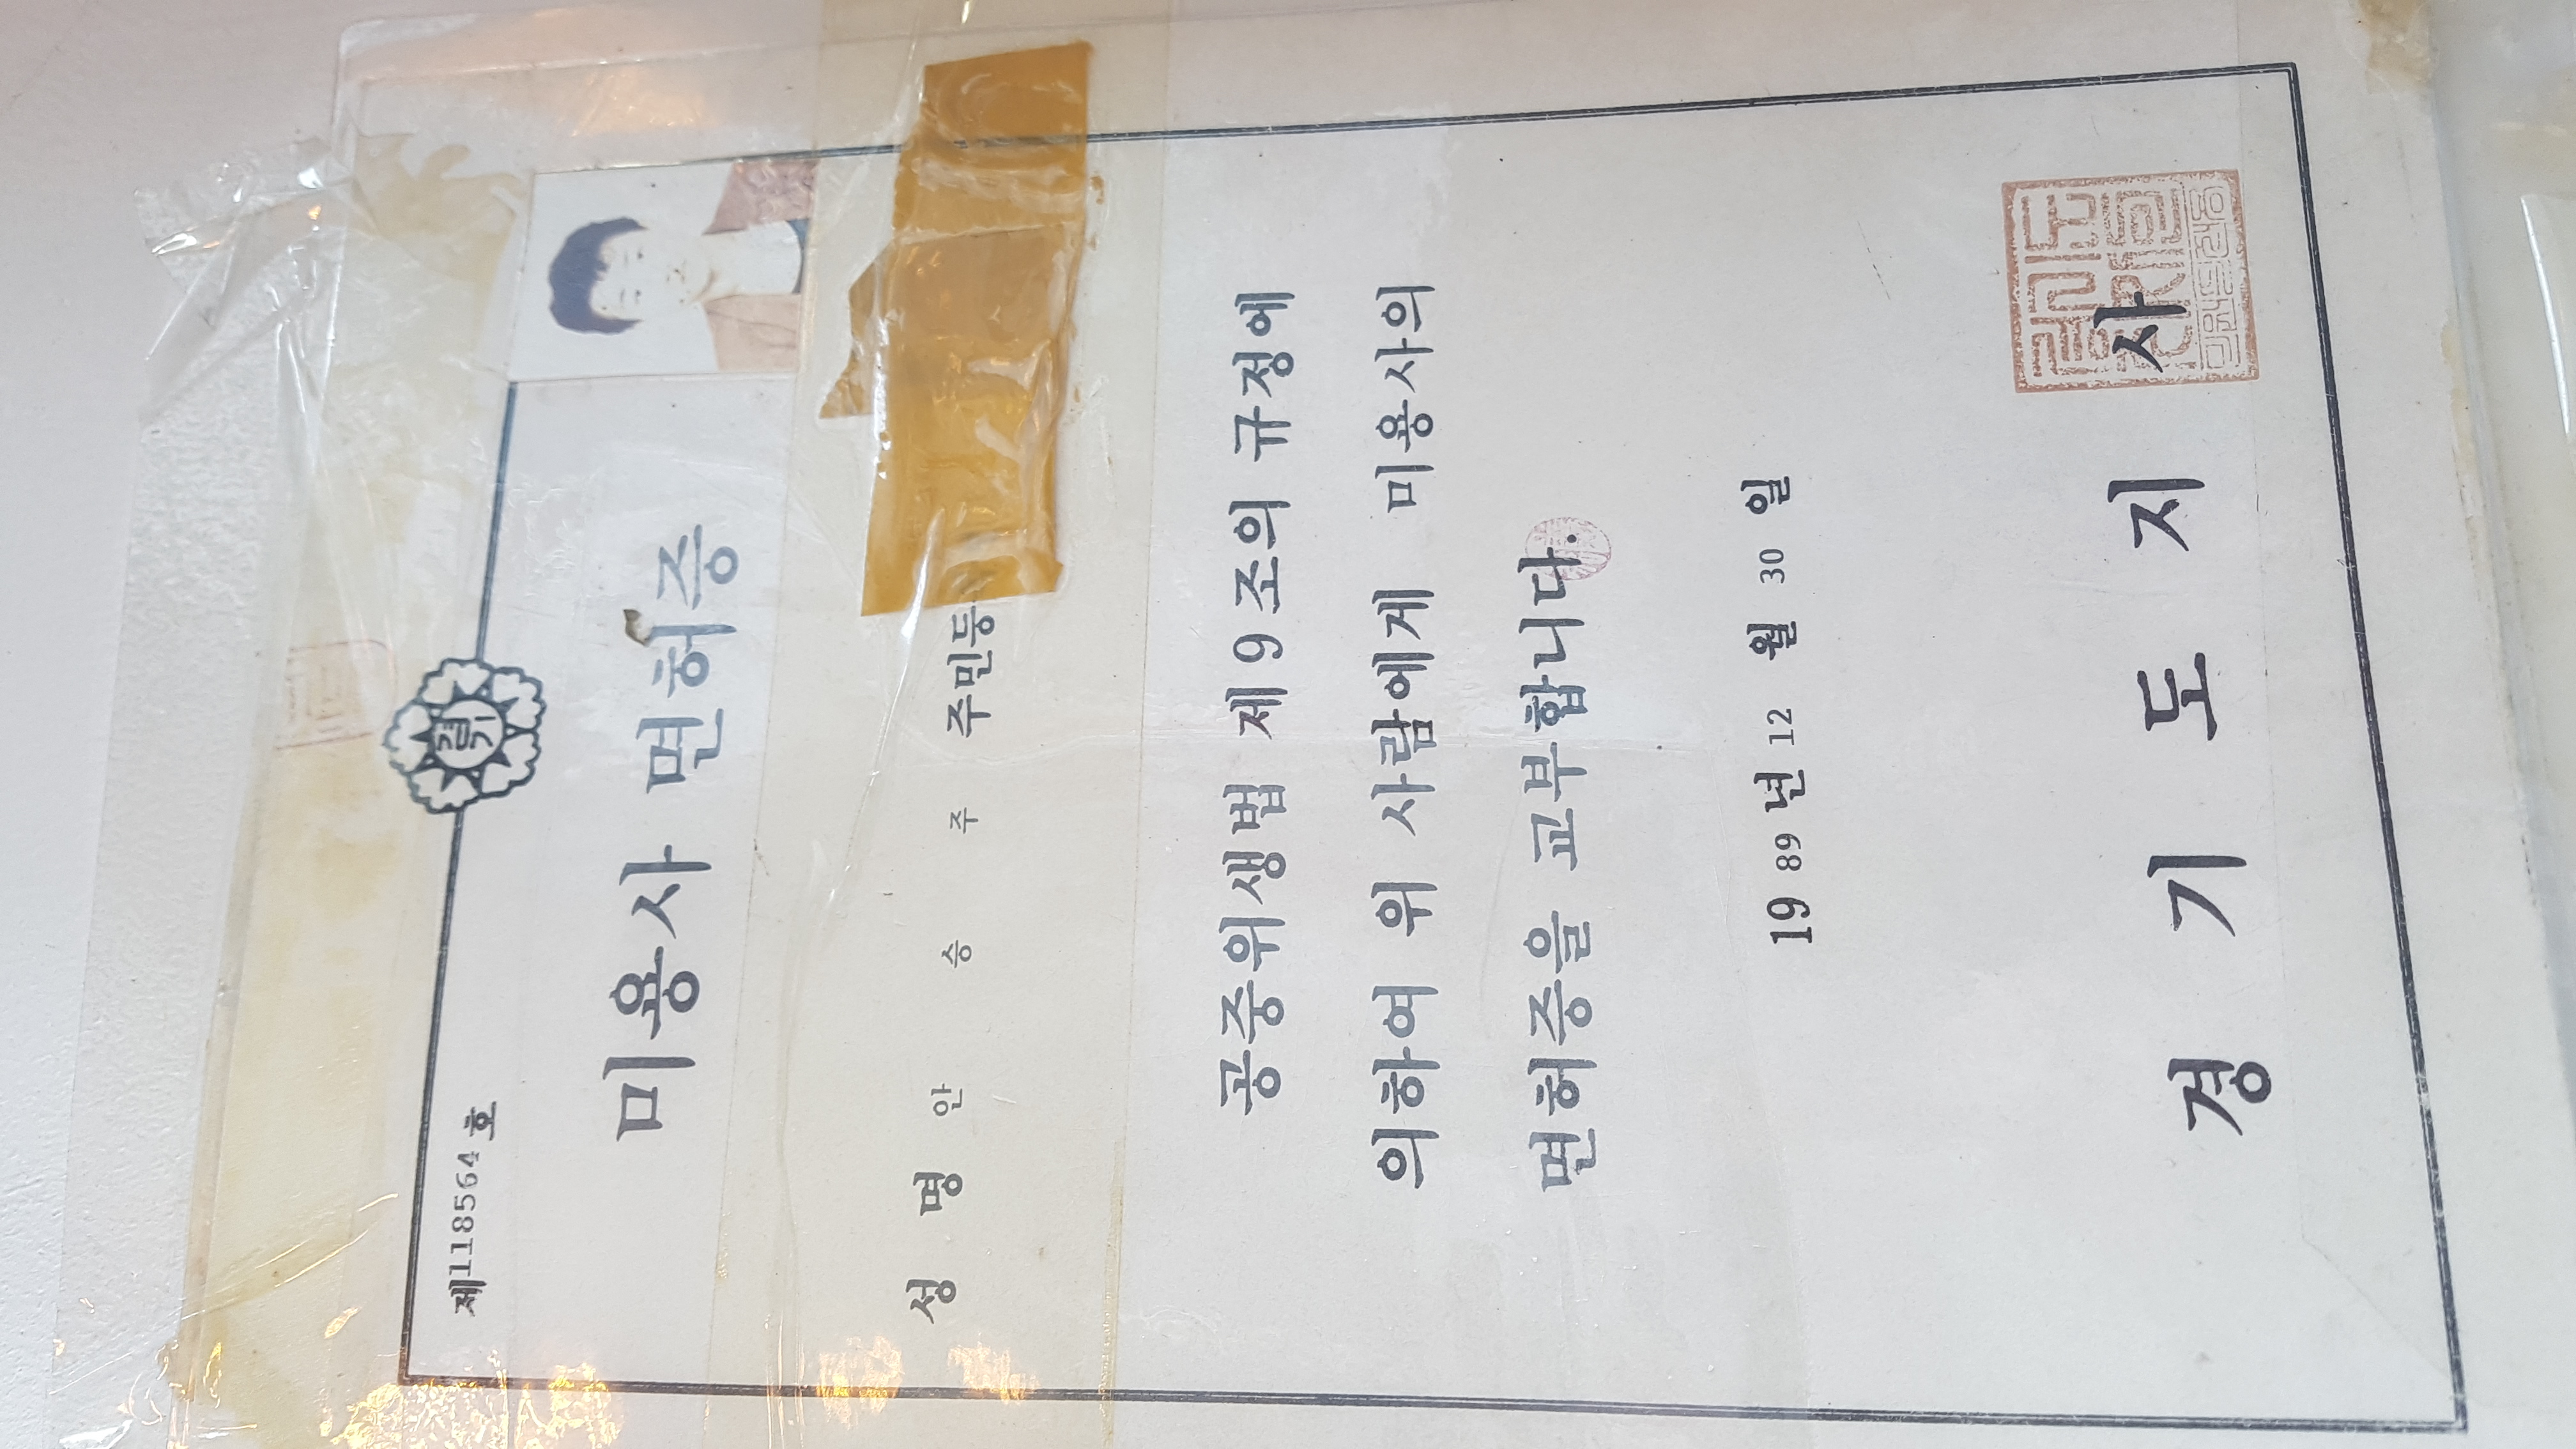 제118564호
경기
미용사 면허증
성 명 안 승 주 주민등
공중위생법 제9조의 규정에
의하여 위 사람에게 미용사의
면허증을 교부합니다.
1989년 12월 30일
경기도지사